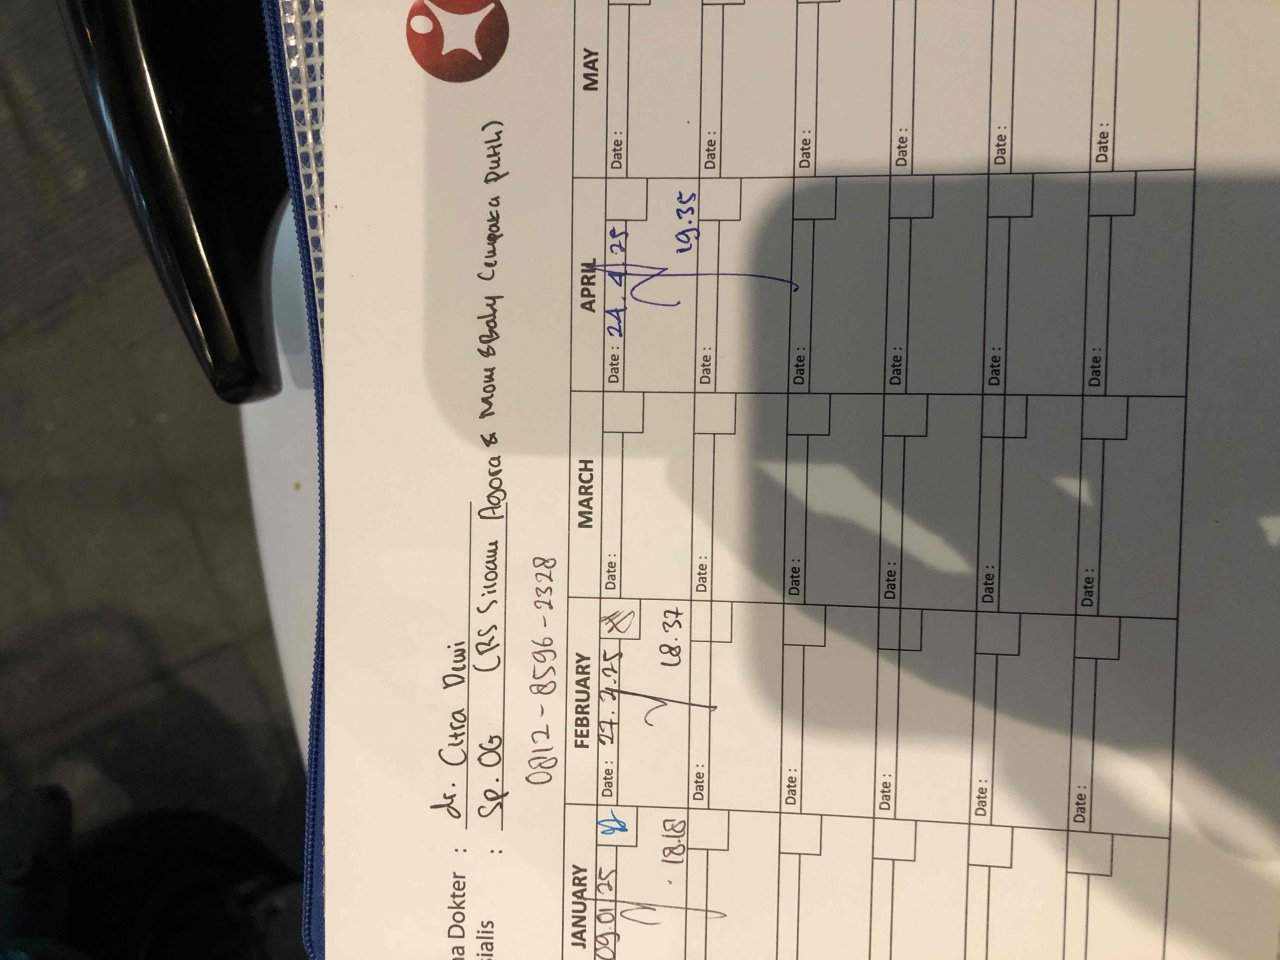 na Dokter : dr. Citra Dewi
sialis : Sp. OG (RS Siloam Agora & Mom & Baby Cempaka Putih)
0812-8596-2328
JANUARY FEBRUARY MARCH APRIL MAY
09.01.25 Date : 27.2.25 Date : Date : 24.4.25 Date :
18.18 18.37 19.35
Date : Date : Date : Date :
Date : Date : Date : Date :
Date : Date : Date : Date :
Date : Date : Date : Date :
Date : Date : Date : Date :